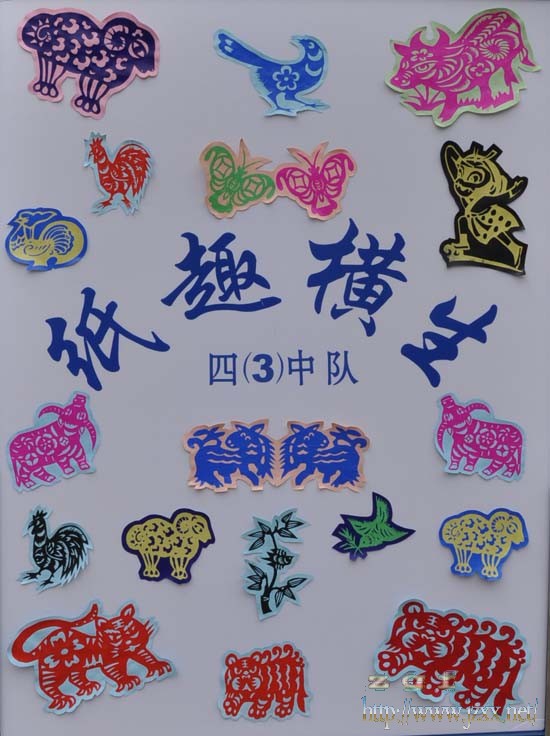 纸趣横生
四(3)中队
zet
http://www.jzxx.net/